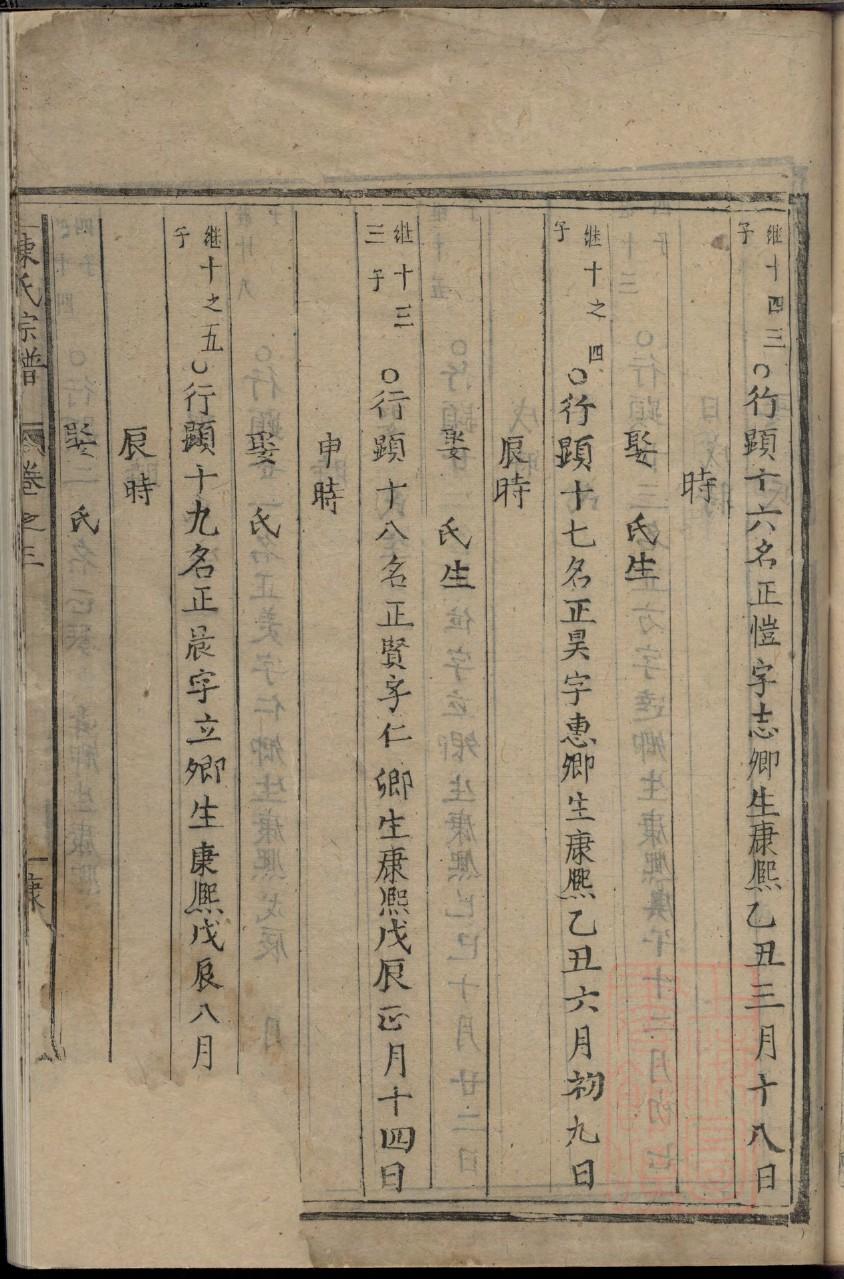 継十四三
子
○行顕十六名正愷字志卿生康熙乙丑三月十八日
時
娶　氏生
継十之四
子
○行顕十七名正昊字惠卿生康熙乙丑六月初九日
辰時
娶　氏生
継十三
三子
○行顕十八名正賢字仁卿生康熙戊辰正月十四日
申時
娶　氏
継十之五
子
○行顕十九名正晨字立卿生康熙戊辰八月
辰時
娶　氏
陳氏宗譜　卷之三